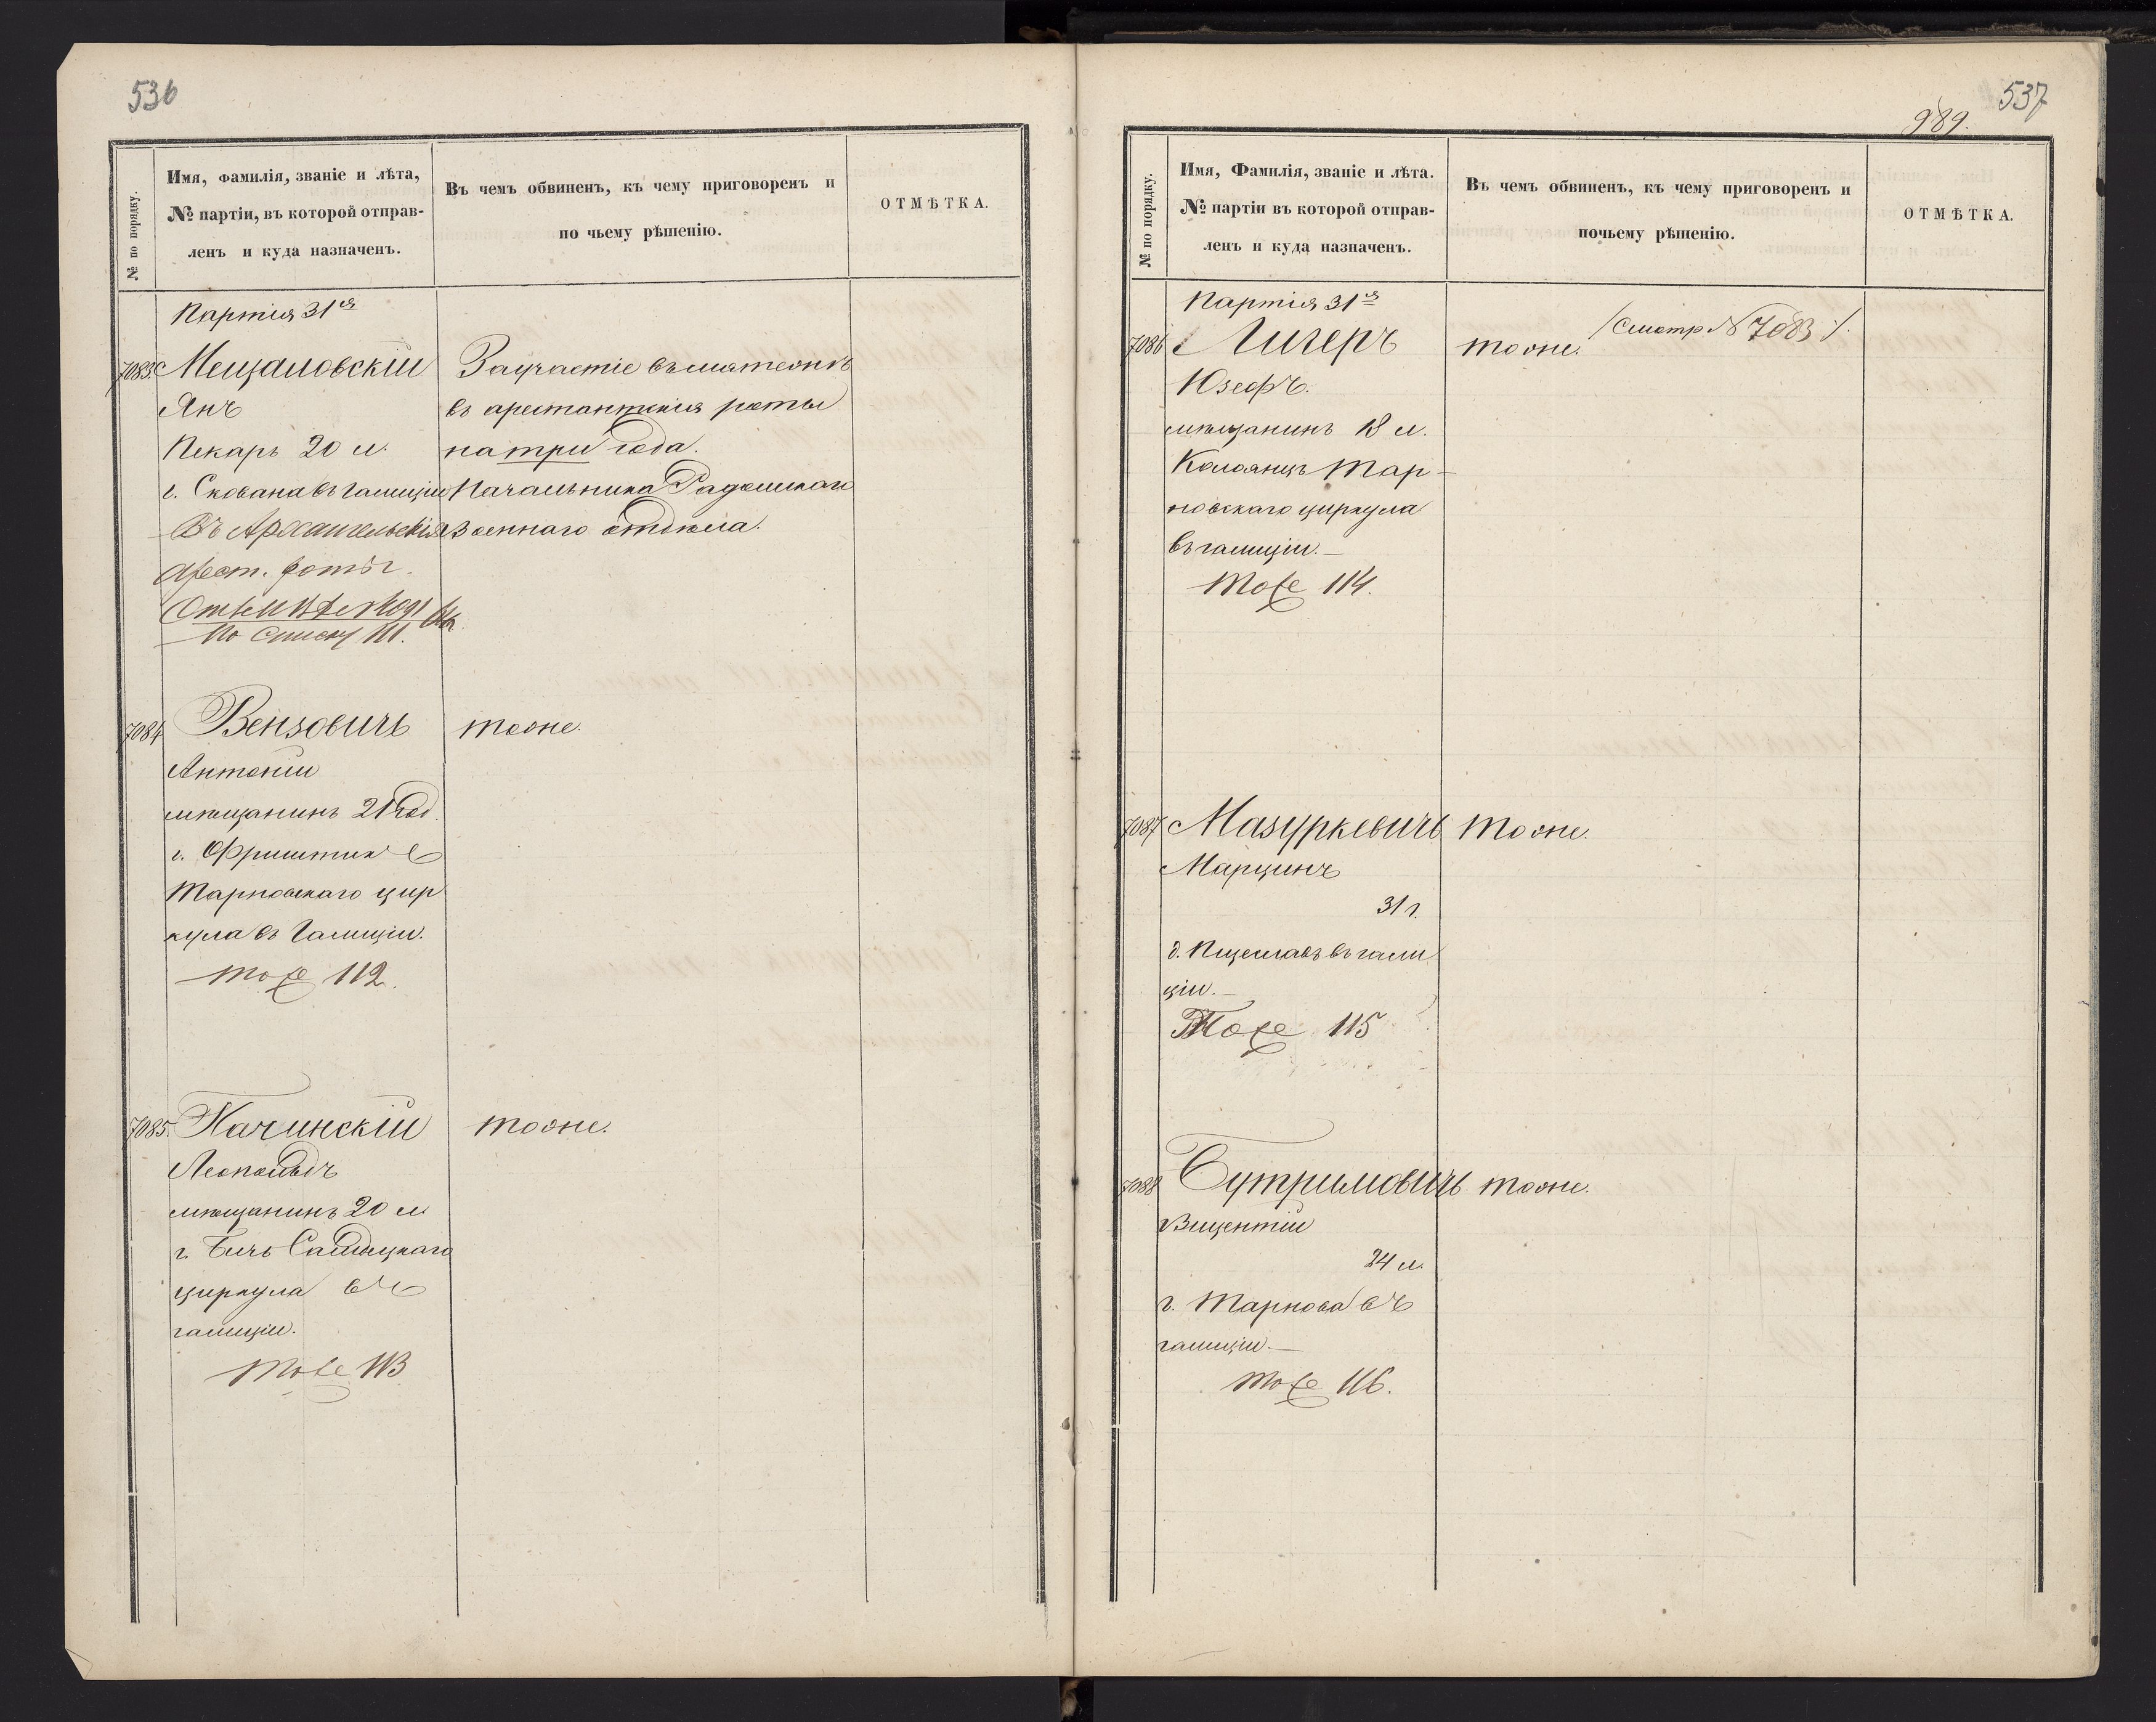 536
№ по порядку.
Имя, Фамилія, званіе и лѣта,
№ партіи, въ которой отправ-
ленъ и куда назначенъ.
Въ чемъ обвиненъ, къ чему приговоренъ и
по чьему рѣшенію.
ОТМѢТКА.
Партія 31я
7083.
Мецановскій
Янъ
Пекарь 20 л.
г. въ Галиціи
Въ Архангельскія
Арест. роты.
По списку 111.
За участіе въ мятежѣ
въ арестантскія роты
на три года.
Начальника Радомскаго
военнаго отдѣла.
7084
Вензовичъ
Антоній
мѣщанинъ 21 год.
г. Фриштик
Тарновскаго цир
кула въ Галиціи.
Тоже 112.
тоже.
7085.
Качинскій
Леопольдъ
мѣщанинъ 20 л.
г. Бичь
циркула въ
Галиціи.
Тоже 113
тоже.
537
989.
№ по порядку.
Имя, Фамилія, званіе и лѣта.
№ партіи въ которой отправ-
ленъ и куда назначенъ.
Въ чемъ обвиненъ, къ чему приговоренъ и
почьему рѣшенію.
ОТМѢТКА.
Партія 31я
7086
Лигеръ
Юзефъ.
мѣщанинъ 18 л.
Тар-
новскаго циркула
въ Галиціи.—
Тоже 114.
тоже. /Смотр № 7083/.
7087
Мазуркевичъ
Марцинъ
31 г.
въ Гали
ціи.—
Тоже 115
Тоже.
7088
Бутримовичъ
Вицентій
24 л.
г. Тарнова въ
Галиціи.—
Тоже 116.
тоже.